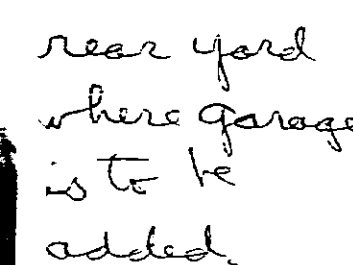 rear yard
where garage
is to be
added.